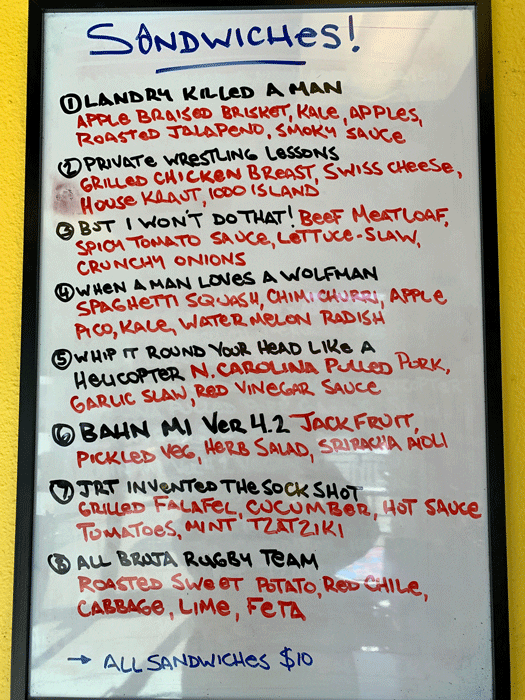 SANDWICHES!
① LANDRY KILLED A MAN
APPLE BRAISED BRISKET, KALE, APPLES,
ROASTED JALAPENO, SMOKY SAUCE
② PRIVATE WRESTLING LESSONS
GRILLED CHICKEN BREAST, SWISS CHEESE,
HOUSE KRAUT, 1000 ISLAND
③ BUT I WON'T DO THAT! BEEF MEATLOAF,
SPICY TOMATO SAUCE, LETTUCE-SLAW,
CRUNCHY ONIONS
④ WHEN A MAN LOVES A WOLFMAN
SPAGHETTI SQUASH, CHIMICHURRI, APPLE
PICO, KALE, WATERMELON RADISH
⑤ WHIP IT ROUND YOUR HEAD LIKE A
HELICOPTER N. CAROLINA PULLED PORK,
GARLIC SLAW, RED VINEGAR SAUCE
⑥ BAHN MI VER 4.2 JACKFRUIT,
PICKLED VEG, HERB SALAD, SRIRACHA AIOLI
⑦ JRT INVENTED THE SOCK SHOT
GRILLED FALAFEL, CUCUMBER, HOT SAUCE
TOMATOES, MINT TZATZIKI
⑧ ALL BRUJA RUGBY TEAM
ROASTED SWEET POTATO, RED CHILE,
CABBAGE, LIME, FETA
→ ALL SANDWICHES $10